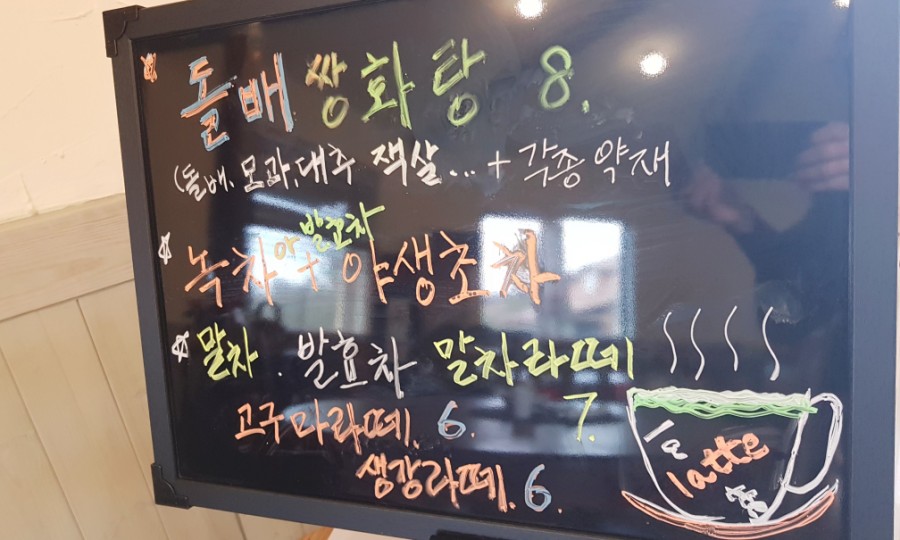 돌배쌍화탕 8.
(돌배.모과.대추 잭살...+ 각종 약재
발효차
녹차 + 야생초차
말차 . 발효차 말차라떼
고구마라떼. 6. 7.
생강라떼. 6.
la
latte